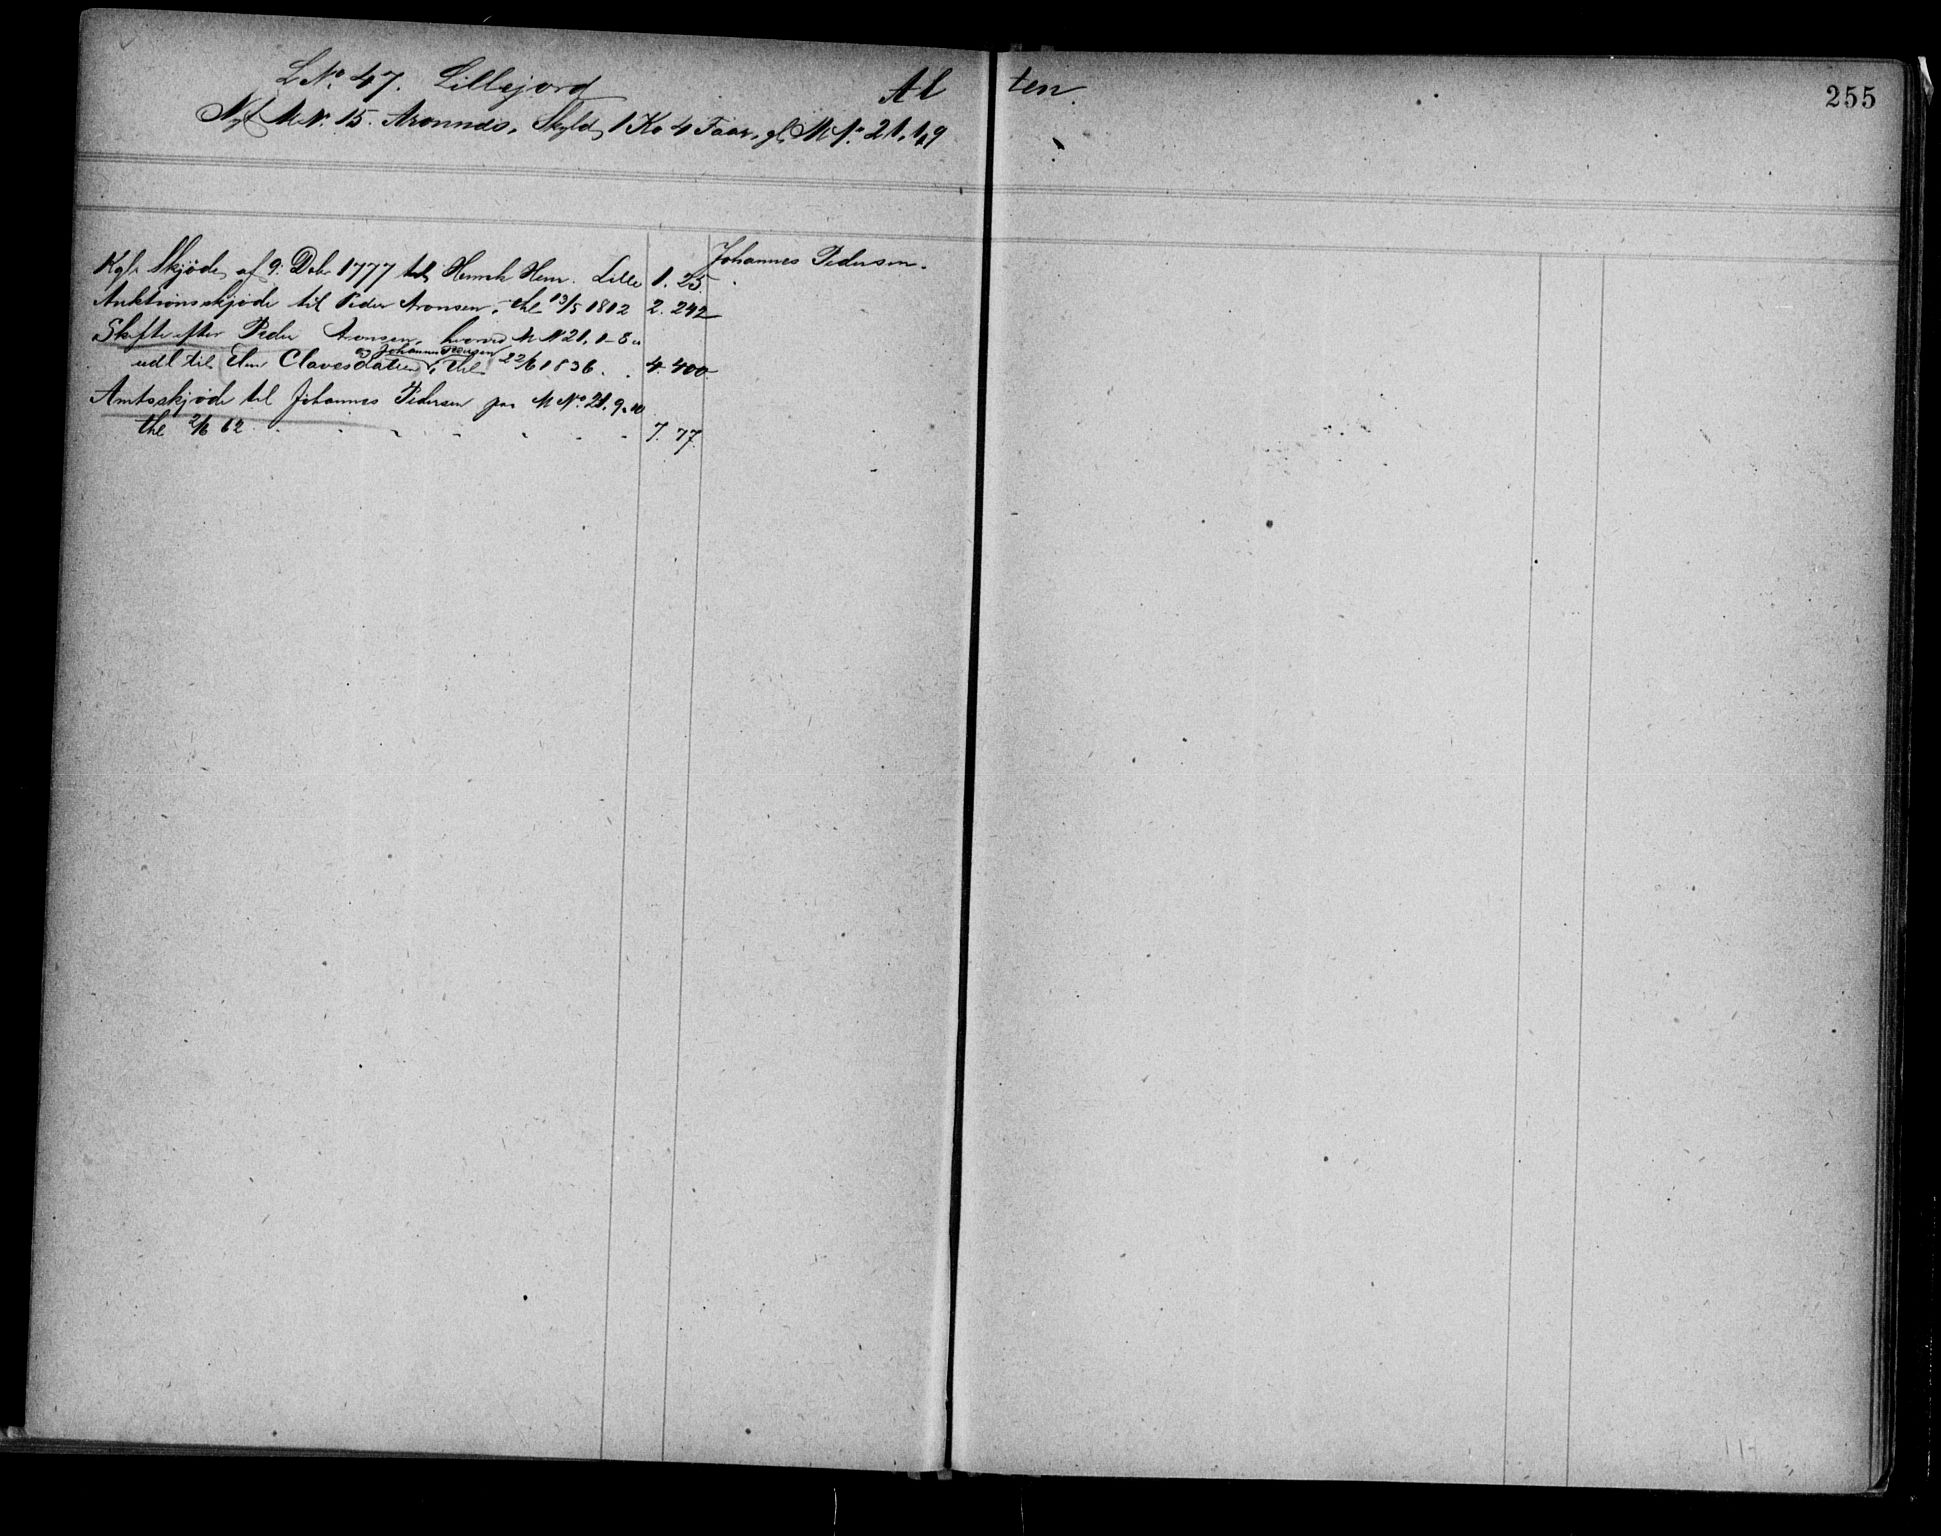 L№ 47. Lillejord
Al ten.
255
Nyt M№ 15. Aronnæs, Skyld, 1 Ko 4 Faar, gl. M№ 21, 1,9
Kgl. Skjøde, af 9. Debr 1777 til Henrik Henr. Lille 1. 25.
Johannes Pedersen.
Auktionsskjøde til Peder Aronsen, thl 13/5 1812 2. 242
Skifte efter Peder Aronsen, hvorved M№ 21, 1-8
og Johannes Pedersen
udl til Elen Clavesdatter, thl 22/6 1836. 4. 400.
Amtsskjøde til Johannes Pedersen paa M№ 21, 9 & 10
thl 2/6 62 7. 77.